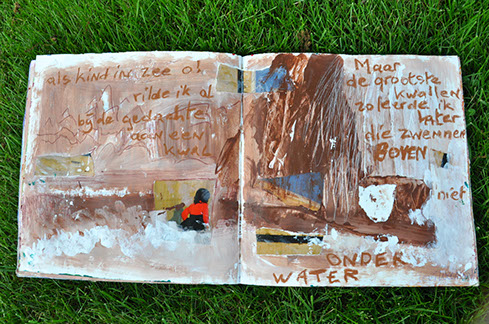 als kind in zee o!
rilde ik al
bij de gedachte
aan een
KWAL
Maar
de grootste
kwallen
zo leerde ik
later
die zwemmen
BOVEN
niet
ONDER
WATER